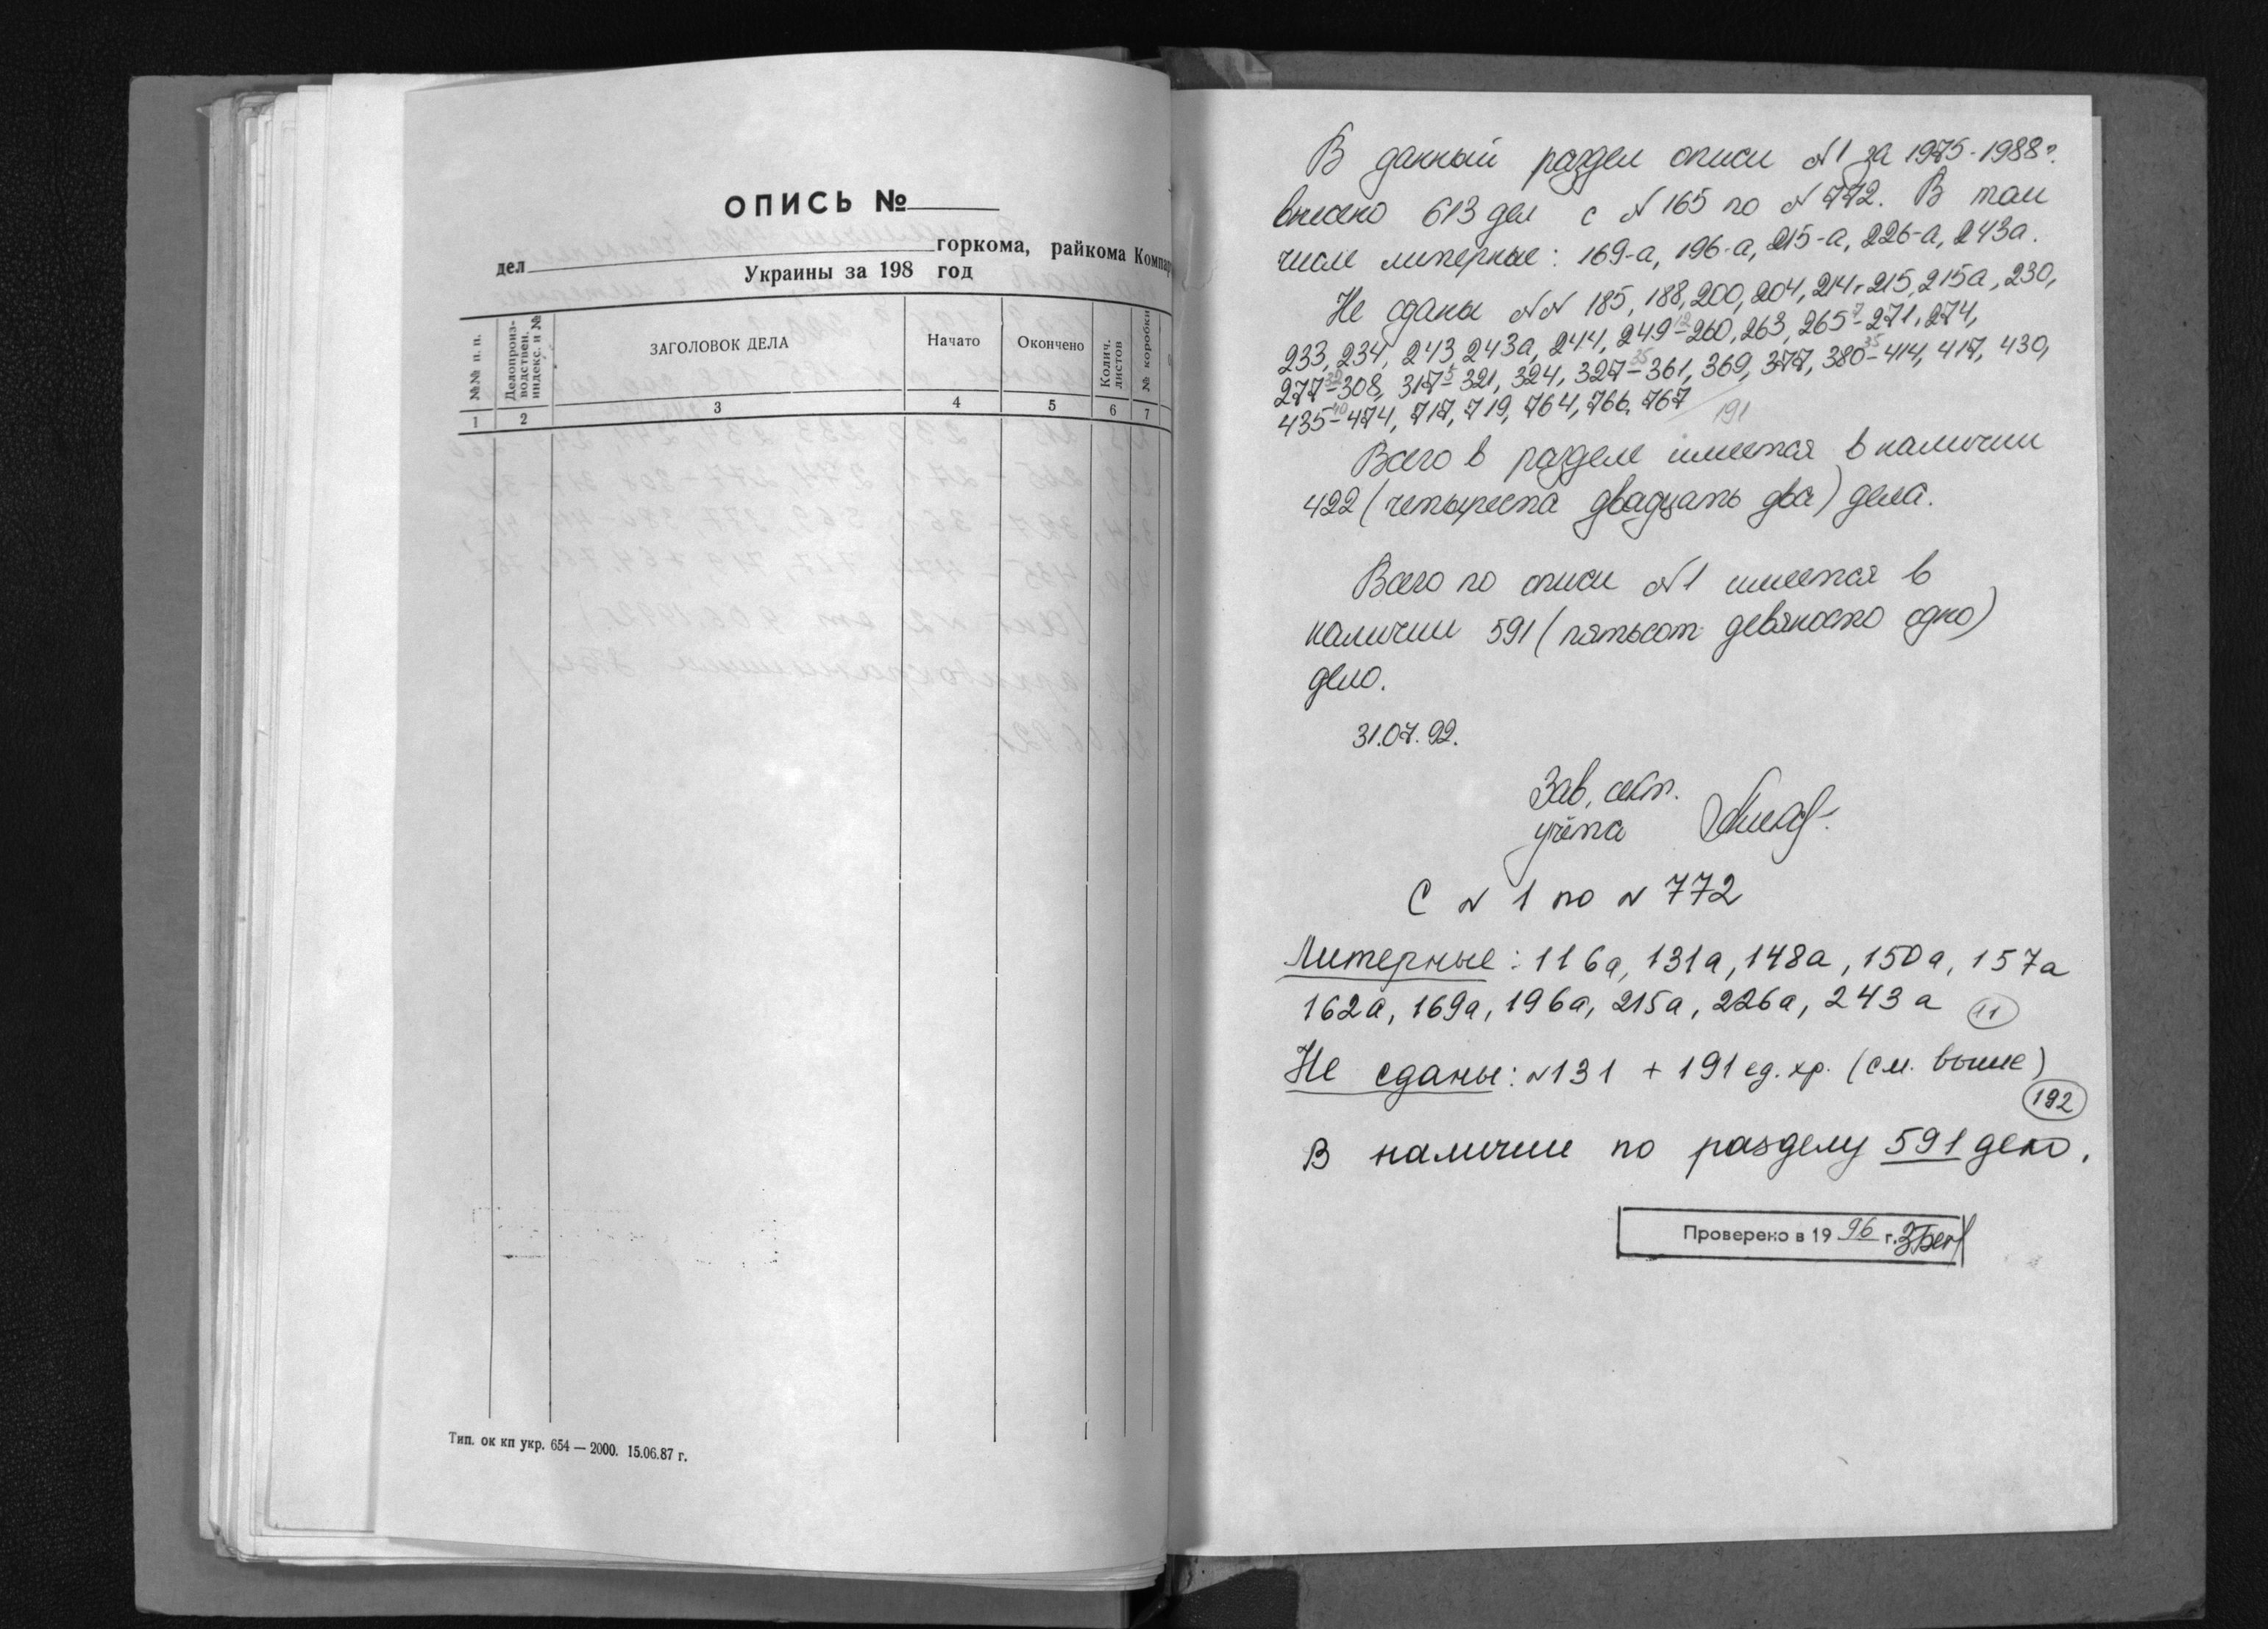 ОПИСЬ №
дел горкома, райкома Компар
Украины за 198 год
№№ п. п.
Делопроиз-
водствен.
индекс. и №
ЗАГОЛОВОК ДЕЛА
Начато
Окончено
Колич.
листов
№ коробки
1 2 3 4 5 6 7
Тип. ок кп укр. 654 — 2000. 15.06.87 г.
В данный раздел описи №1 за 1975-1988г.
внесено 613 дел с №165 по №772. В том
числе литерные: 169-а, 196-а, 215-а, 226-а, 243а.
Не сданы №№ 185, 188, 200, 204, 214, 215, 215а, 230,
233, 234, 243, 243а, 244, 249-260, 263, 265-271, 274,
277-308, 317-321, 324, 327-361, 369, 377, 380-414, 417, 430,
435-474, 717, 719, 764, 766, 767
191
Всего в разделе имеется в наличии
422 (четыреста двадцать два) дела.
Всего по описи №1 имеется в
наличии 591 (пятьсот девяносто одно)
дело.
31.07.92.
Зав. сект.
учёта
С № 1 по № 772
Литерные: 116а, 131а, 148а, 150а, 157а
162а, 169а, 196а, 215а, 226а, 243а 11
Не сданы: №131 + 191 ед. хр. (см. выше)
192
В наличии по разделу 591 дело.
Проверено в 1996 г.